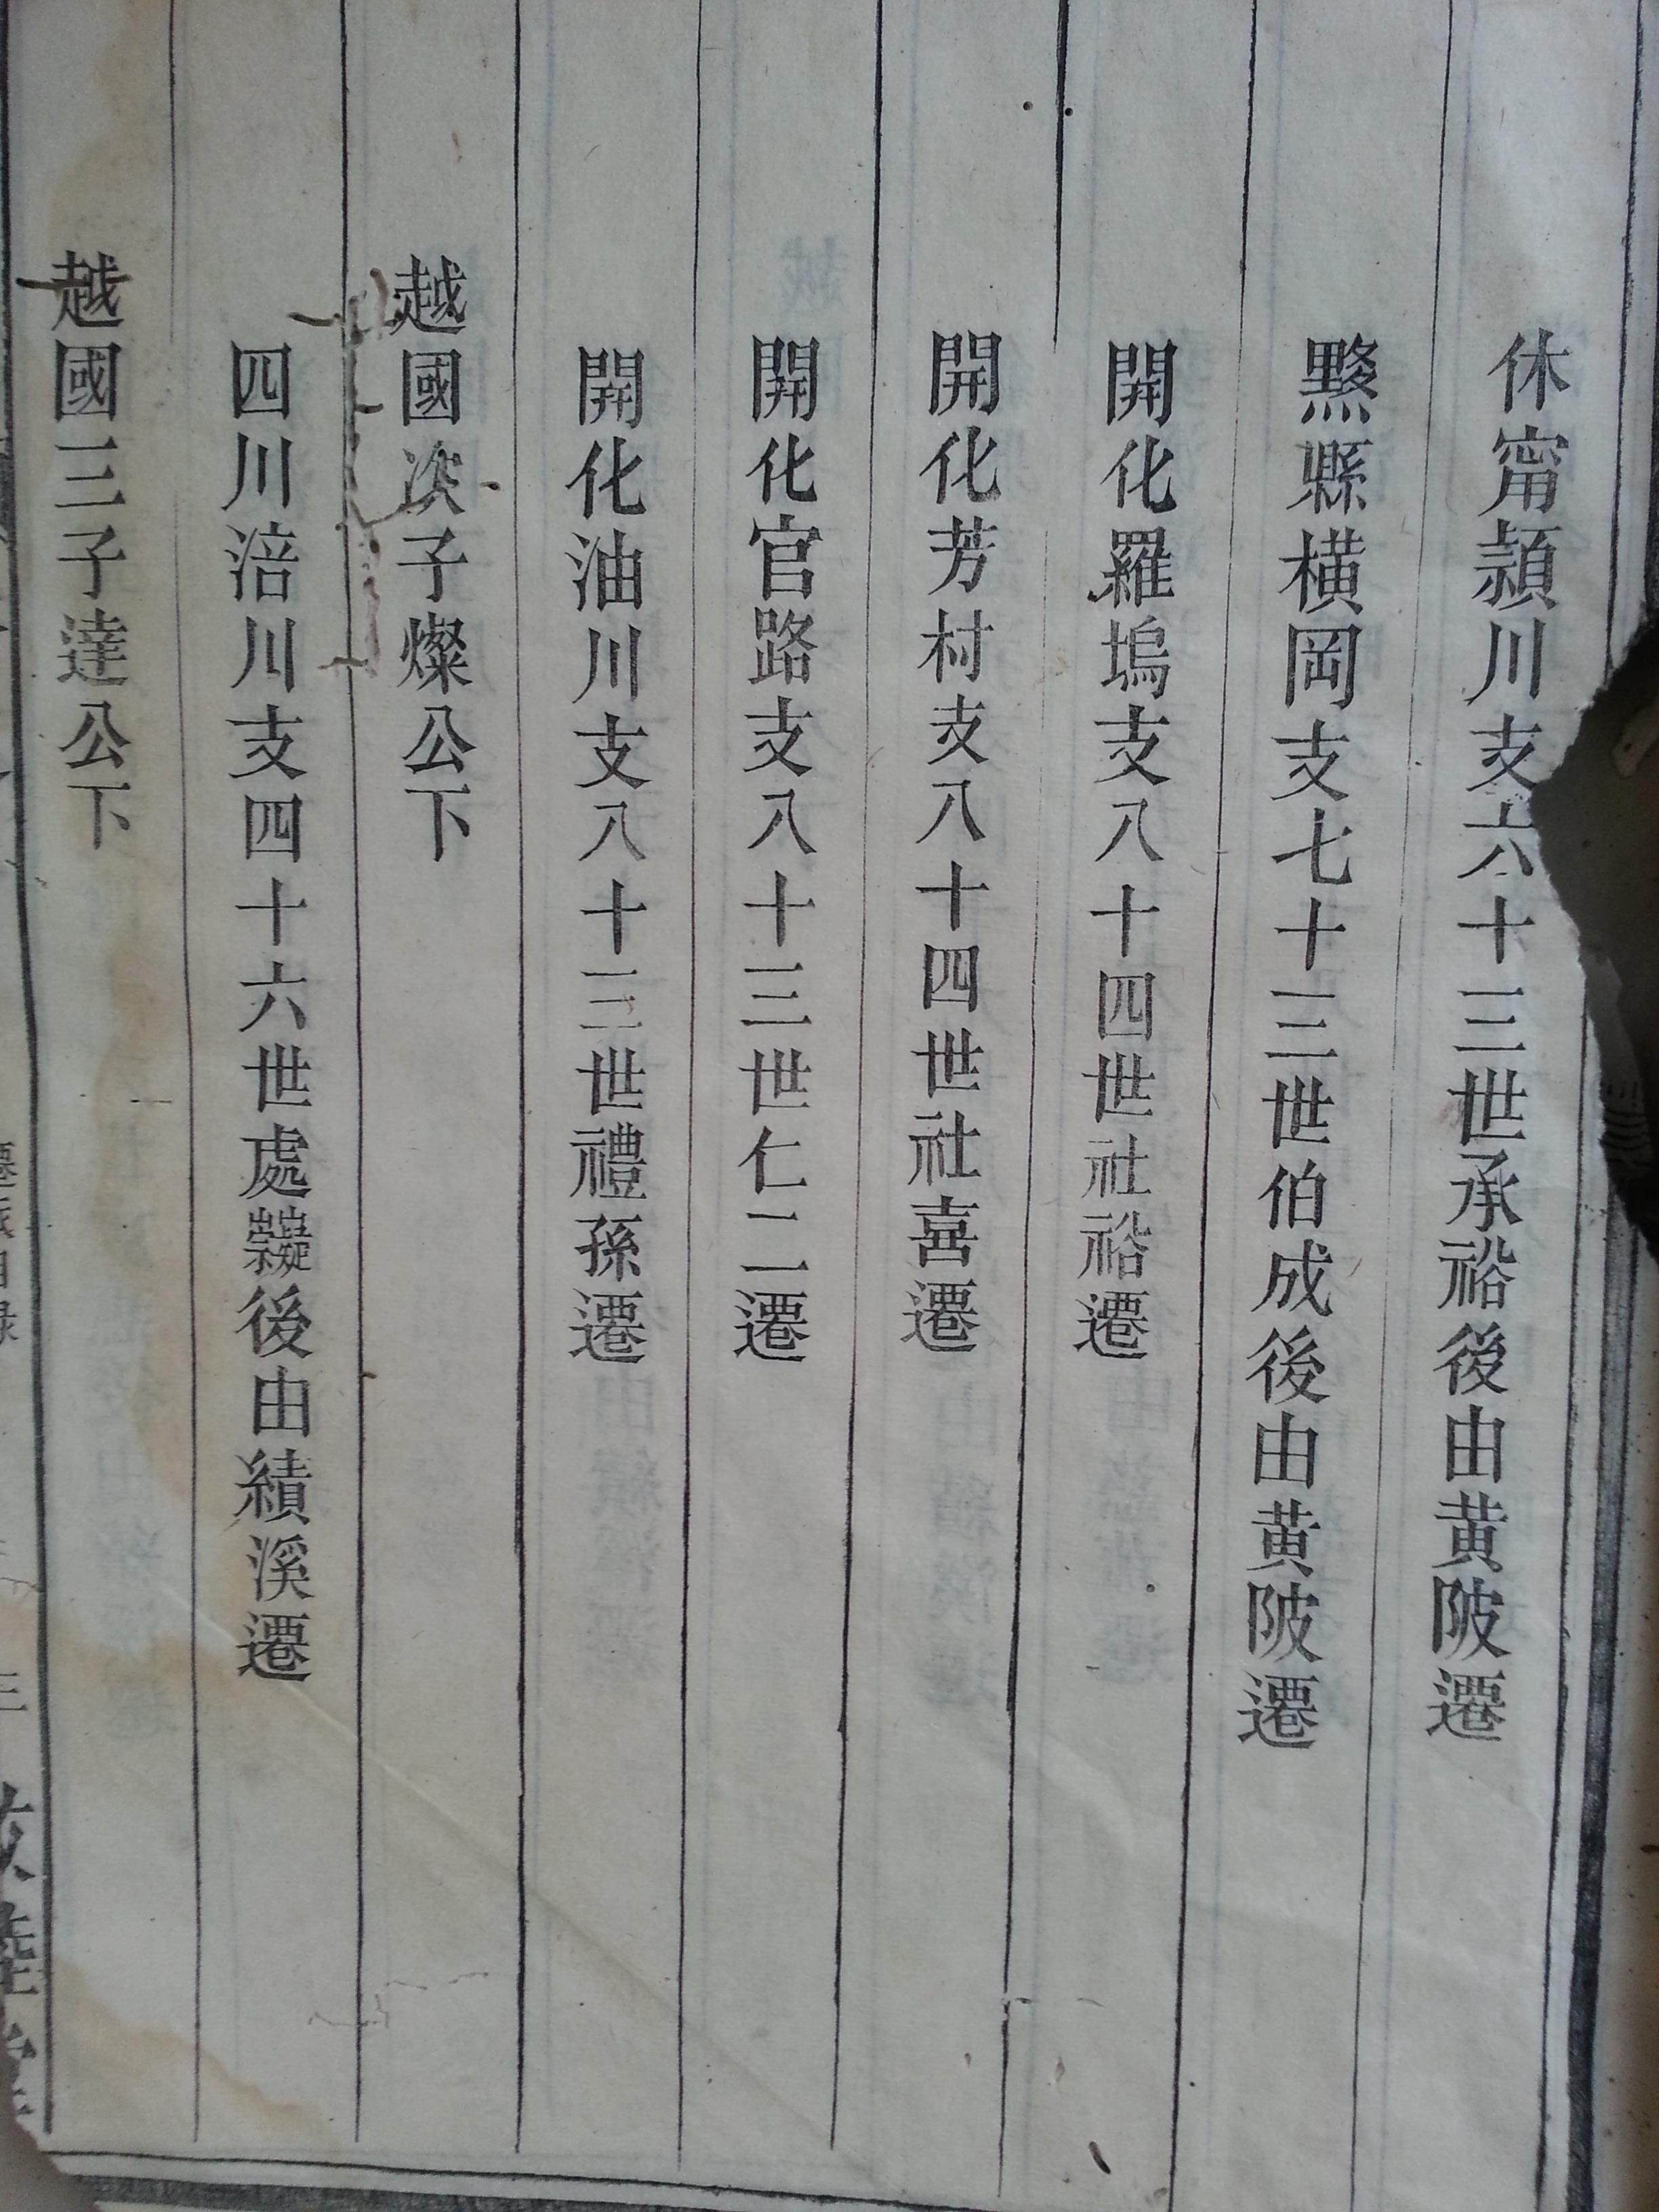 休甯潁川支六十三世承裕後由黄陂遷
黟縣横岡支七十三世伯成後由黄陂遷
開化羅塢支八十四世社裕遷
開化芳村支八十四世社喜遷
開化官路支八十三世仁二遷
開化油川支八十三世禮孫遷
越國次子燦公下
四川涪川支四十六世處後由績溪遷
越國三子達公下
三